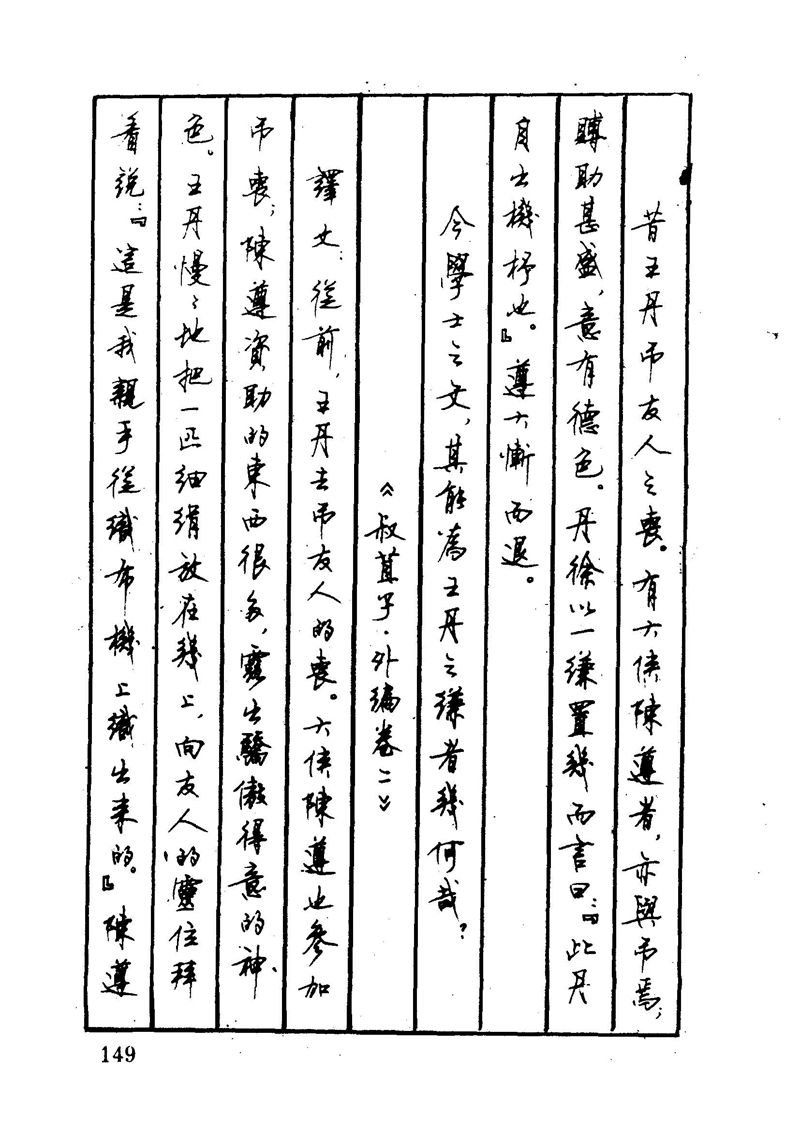 昔王丹吊友人之喪。有大俠陳遵者，亦與吊焉；
賻助甚盛，意有德色。丹徐以一縑置幾而言曰：『此丹
自出機杼也。』遵大慚而退。
今學士之文，其能為王丹之縑者幾何哉？
《叔苴子·外編卷二》
譯文：從前，王丹去吊友人的喪。大俠陳遵也參加
吊喪；陳遵資助的東西很多，露出驕傲得意的神
色。王丹慢慢地把一匹细絹放在幾上，向友人的靈位拜
着説：『這是我親手從織布機上織出来的。』陳遵
149